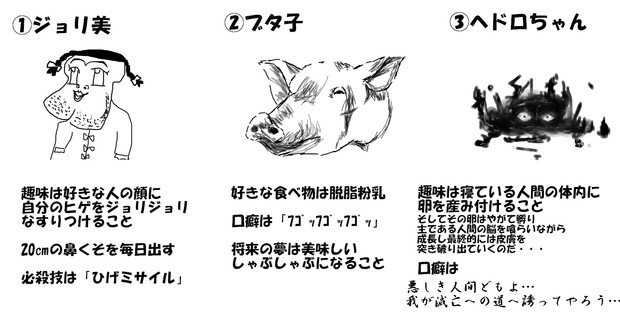 ①ジョリ美
②ブタ子
③ヘドロちゃん
趣味は好きな人の顔に
自分のヒゲをジョリジョリ
なすりつけること
20cmの鼻くそを毎日出す
必殺技は「ひげミサイル」
好きな食べ物は脱脂粉乳
口癖は「ﾌｺﾞｯﾌｺﾞｯﾌｺﾞｯ」
将来の夢は美味しい
しゃぶしゃぶになること
趣味は寝ている人間の体内に
卵を産み付けること
そしてその卵はやがて孵り
主である人間の脳を喰らいながら
成長し最終的には皮膚を
突き破り出ていくのだ・・・
口癖は
悪しき人間どもよ…
我が滅亡への道へ誘ってやろう…